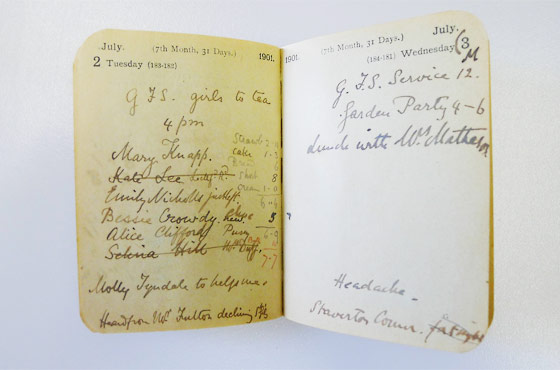 July. (7th Month, 31 Days.) 1901.
2 Tuesday (183-182)
G.F.S. girls to tea
4 pm
Mary Knapp.
cake 1-
Kate Lee
8
Emily Nicholls
1-0
6-6
Bessie Crowdy.
5
Alice Clifford Pusey
6-9
Selina Hill
7-7
Molly Tyndale to help me.
Heard from Mrs Fulton declining 5th
1901. (7th Month, 31 Days.) July.
(184-181) Wednesday 3
M
G.F.S. Service 12.
Garden Party 4-6
Lunch with Mrs Matheson
Headache.
Staverton Comm.